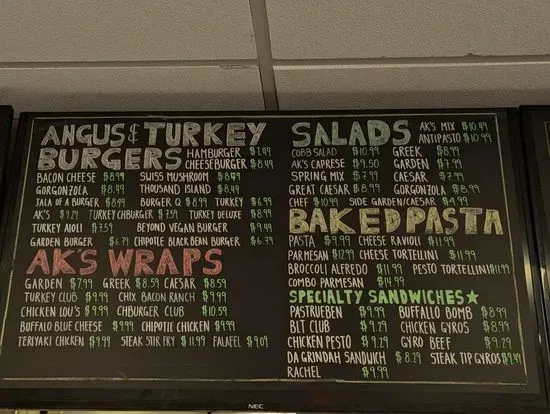 ANGUS & TURKEY
BURGERS HAMBURGER $7.49
CHEESEBURGER $8.49
BACON CHEESE $8.99 SWISS MUSHROOM $8.49
GORGONZOLA $8.49 THOUSAND ISLAND $8.49
JALA OF A BURGER $8.99 BURGER Q $8.99 TURKEY $6.99
AK'S $9.29 TURKEY CHBURGER $7.59 TURKEY DELUXE $8.99
TURKEY AIOLI $7.59 BEYOND VEGAN BURGER $9.49
GARDEN BURGER $6.79 CHIPOTLE BLACK BEAN BURGER $6.79
AK'S WRAPS
GARDEN $7.99 GREEK $8.59 CAESAR $8.59
TURKEY CLUB $9.99 CHIX BACON RANCH $9.99
CHICKEN LOU'S $9.99 CHBURGER CLUB $10.59
BUFFALO BLUE CHEESE $9.99 CHIPOTLE CHICKEN $9.99
TERIYAKI CHICKEN $9.99 STEAK STIR FRY $11.99 FALAFEL $9.09
SALADS AK'S MIX $10.49
ANTIPASTO $10.99
COBB SALAD $10.99 GREEK $8.99
AK'S CAPRESE $9.50 GARDEN $7.99
SPRING MIX $7.99 CAESAR $7.99
GREAT CAESAR $8.99 GORGONZOLA $8.99
CHEF $10.99 SIDE GARDEN/CAESAR $4.99
BAKED PASTA
PASTA $9.99 CHEESE RAVIOLI $11.99
PARMESAN $12.99 CHEESE TORTELLINI $11.99
BROCCOLI ALFREDO $11.99 PESTO TORTELLINI $11.99
COMBO PARMESAN $14.99
SPECIALTY SANDWICHES★
PASTRUEBEN $9.99 BUFFALO BOMB $8.99
BLT CLUB $9.29 CHICKEN GYROS $8.99
CHICKEN PESTO $9.29 GYRO BEEF $9.29
DA GRINDAH SANDWICH $8.29 STEAK TIP GYROS $9.49
RACHEL $9.99
NEC